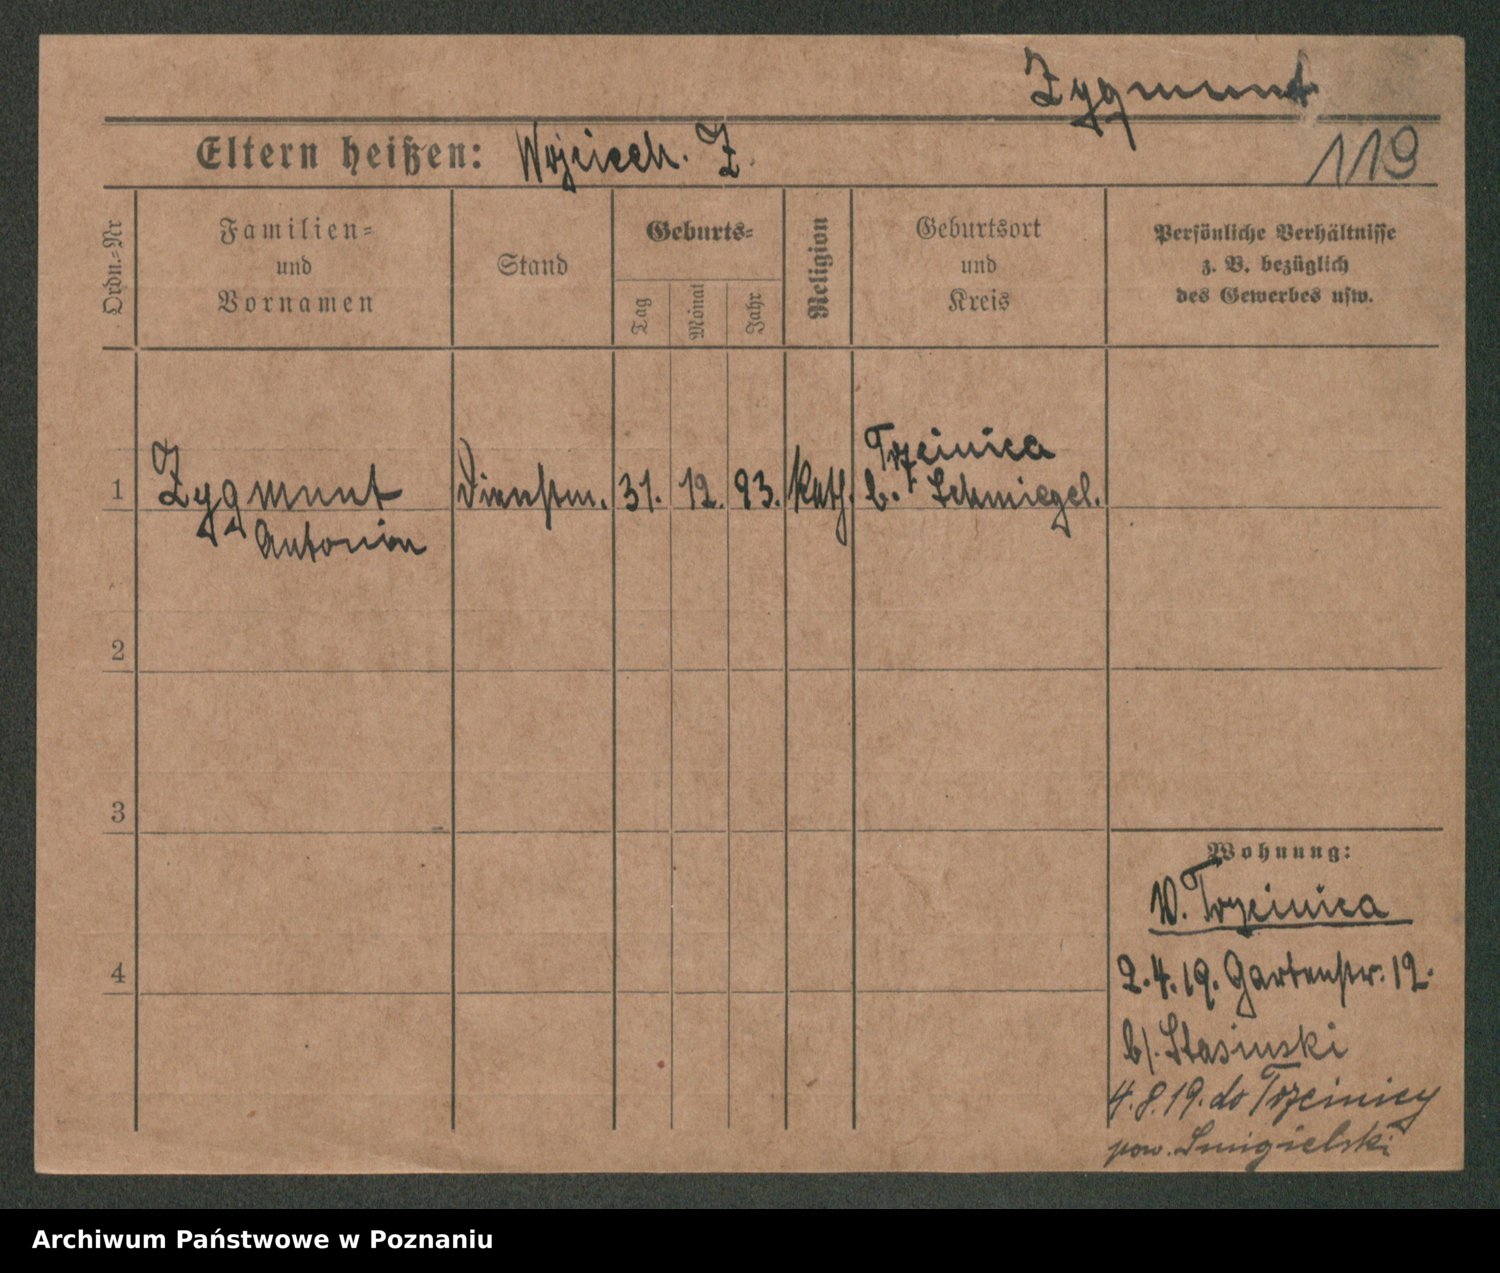 Zygmunt
Eltern heißen: Wojciech. Z.
119
Ordn.-Nr
Familien-
und
Vornamen
Stand
Geburts-
Tag
Monat
Jahr
Religion
Geburtsort
und
Kreis
Persönliche Verhältnisse
z. B. bezüglich
des Gewerbes usw.
1
Zygmunt
Antonia
Dienstm.
31.
12.
93.
Kath.
Trzcinica
b. Schmiegel.
2
3
4
Wohnung:
W. Trzcinica
2.4.19. Gartenstr. 12.
b/. Stasinski
4.8.19. do Trzcinicy
pow. Smigielski
Archiwum Państwowe w Poznaniu